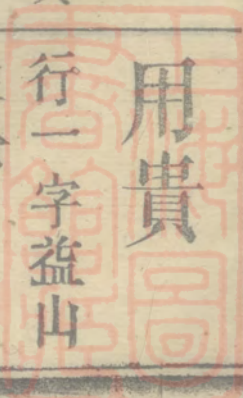 用貴
行一字益山